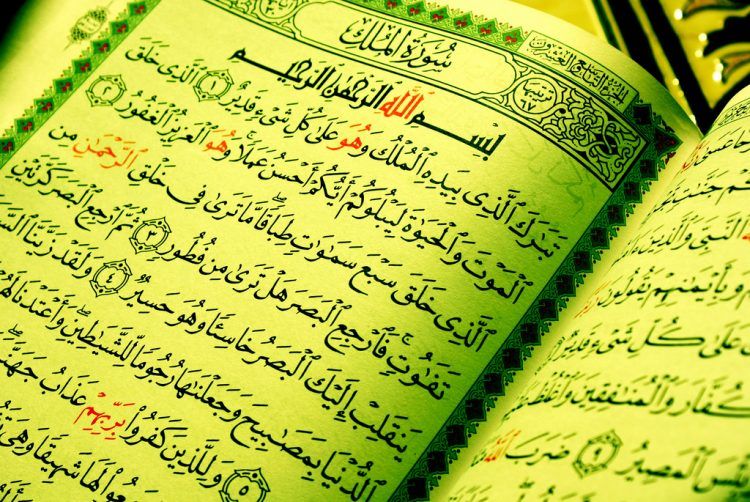 الجزء التاسع والعشرون
سُورَةُ المُلْكِ
ترتيبها ٦٧
بِسْمِ ٱللَّهِ ٱلرَّحْمَٰنِ ٱلرَّحِيمِ
تَبَٰرَكَ ٱلَّذِى بِيَدِهِ ٱلْمُلْكُ وَهُوَ عَلَىٰ كُلِّ شَىْءٍ قَدِيرٌ ١ ٱلَّذِى خَلَقَ
ٱلْمَوْتَ وَٱلْحَيَوٰةَ لِيَبْلُوَكُمْ أَيُّكُمْ أَحْسَنُ عَمَلًا ۚ وَهُوَ ٱلْعَزِيزُ ٱلْغَفُورُ ٢
ٱلَّذِى خَلَقَ سَبْعَ سَمَٰوَٰتٍ طِبَاقًا ۖ مَّا تَرَىٰ فِى خَلْقِ ٱلرَّحْمَٰنِ مِن
تَفَٰوُتٍ ۖ فَٱرْجِعِ ٱلْبَصَرَ هَلْ تَرَىٰ مِن فُطُورٍ ٣ ثُمَّ ٱرْجِعِ ٱلْبَصَرَ كَرَّتَيْنِ
يَنقَلِبْ إِلَيْكَ ٱلْبَصَرُ خَاسِئًا وَهُوَ حَسِيرٌ ٤ وَلَقَدْ زَيَّنَّا
ٱلدُّنْيَا بِمَصَٰبِيحَ وَجَعَلْنَٰهَا رُجُومًا لِّلشَّيَٰطِينِ ۖ وَأَعْتَدْنَا
٥ وَلِلَّذِينَ كَفَرُوا۟ بِرَبِّهِمْ عَذَابُ
لَهَا شَهِيقًا وَهِىَ
ٱلنَّبِىَّ وَٱلَّذِينَ
وَبِأَيْمَٰنِهِمْ يَقُولُونَ
عَلَىٰ كُلِّ شَىْءٍ قَدِيرٌ
وَٱلْمُنَٰفِقِينَ وَٱغْلُظْ
ٱلْمَصِيرُ ٩ ضَرَبَ ٱللَّهُ